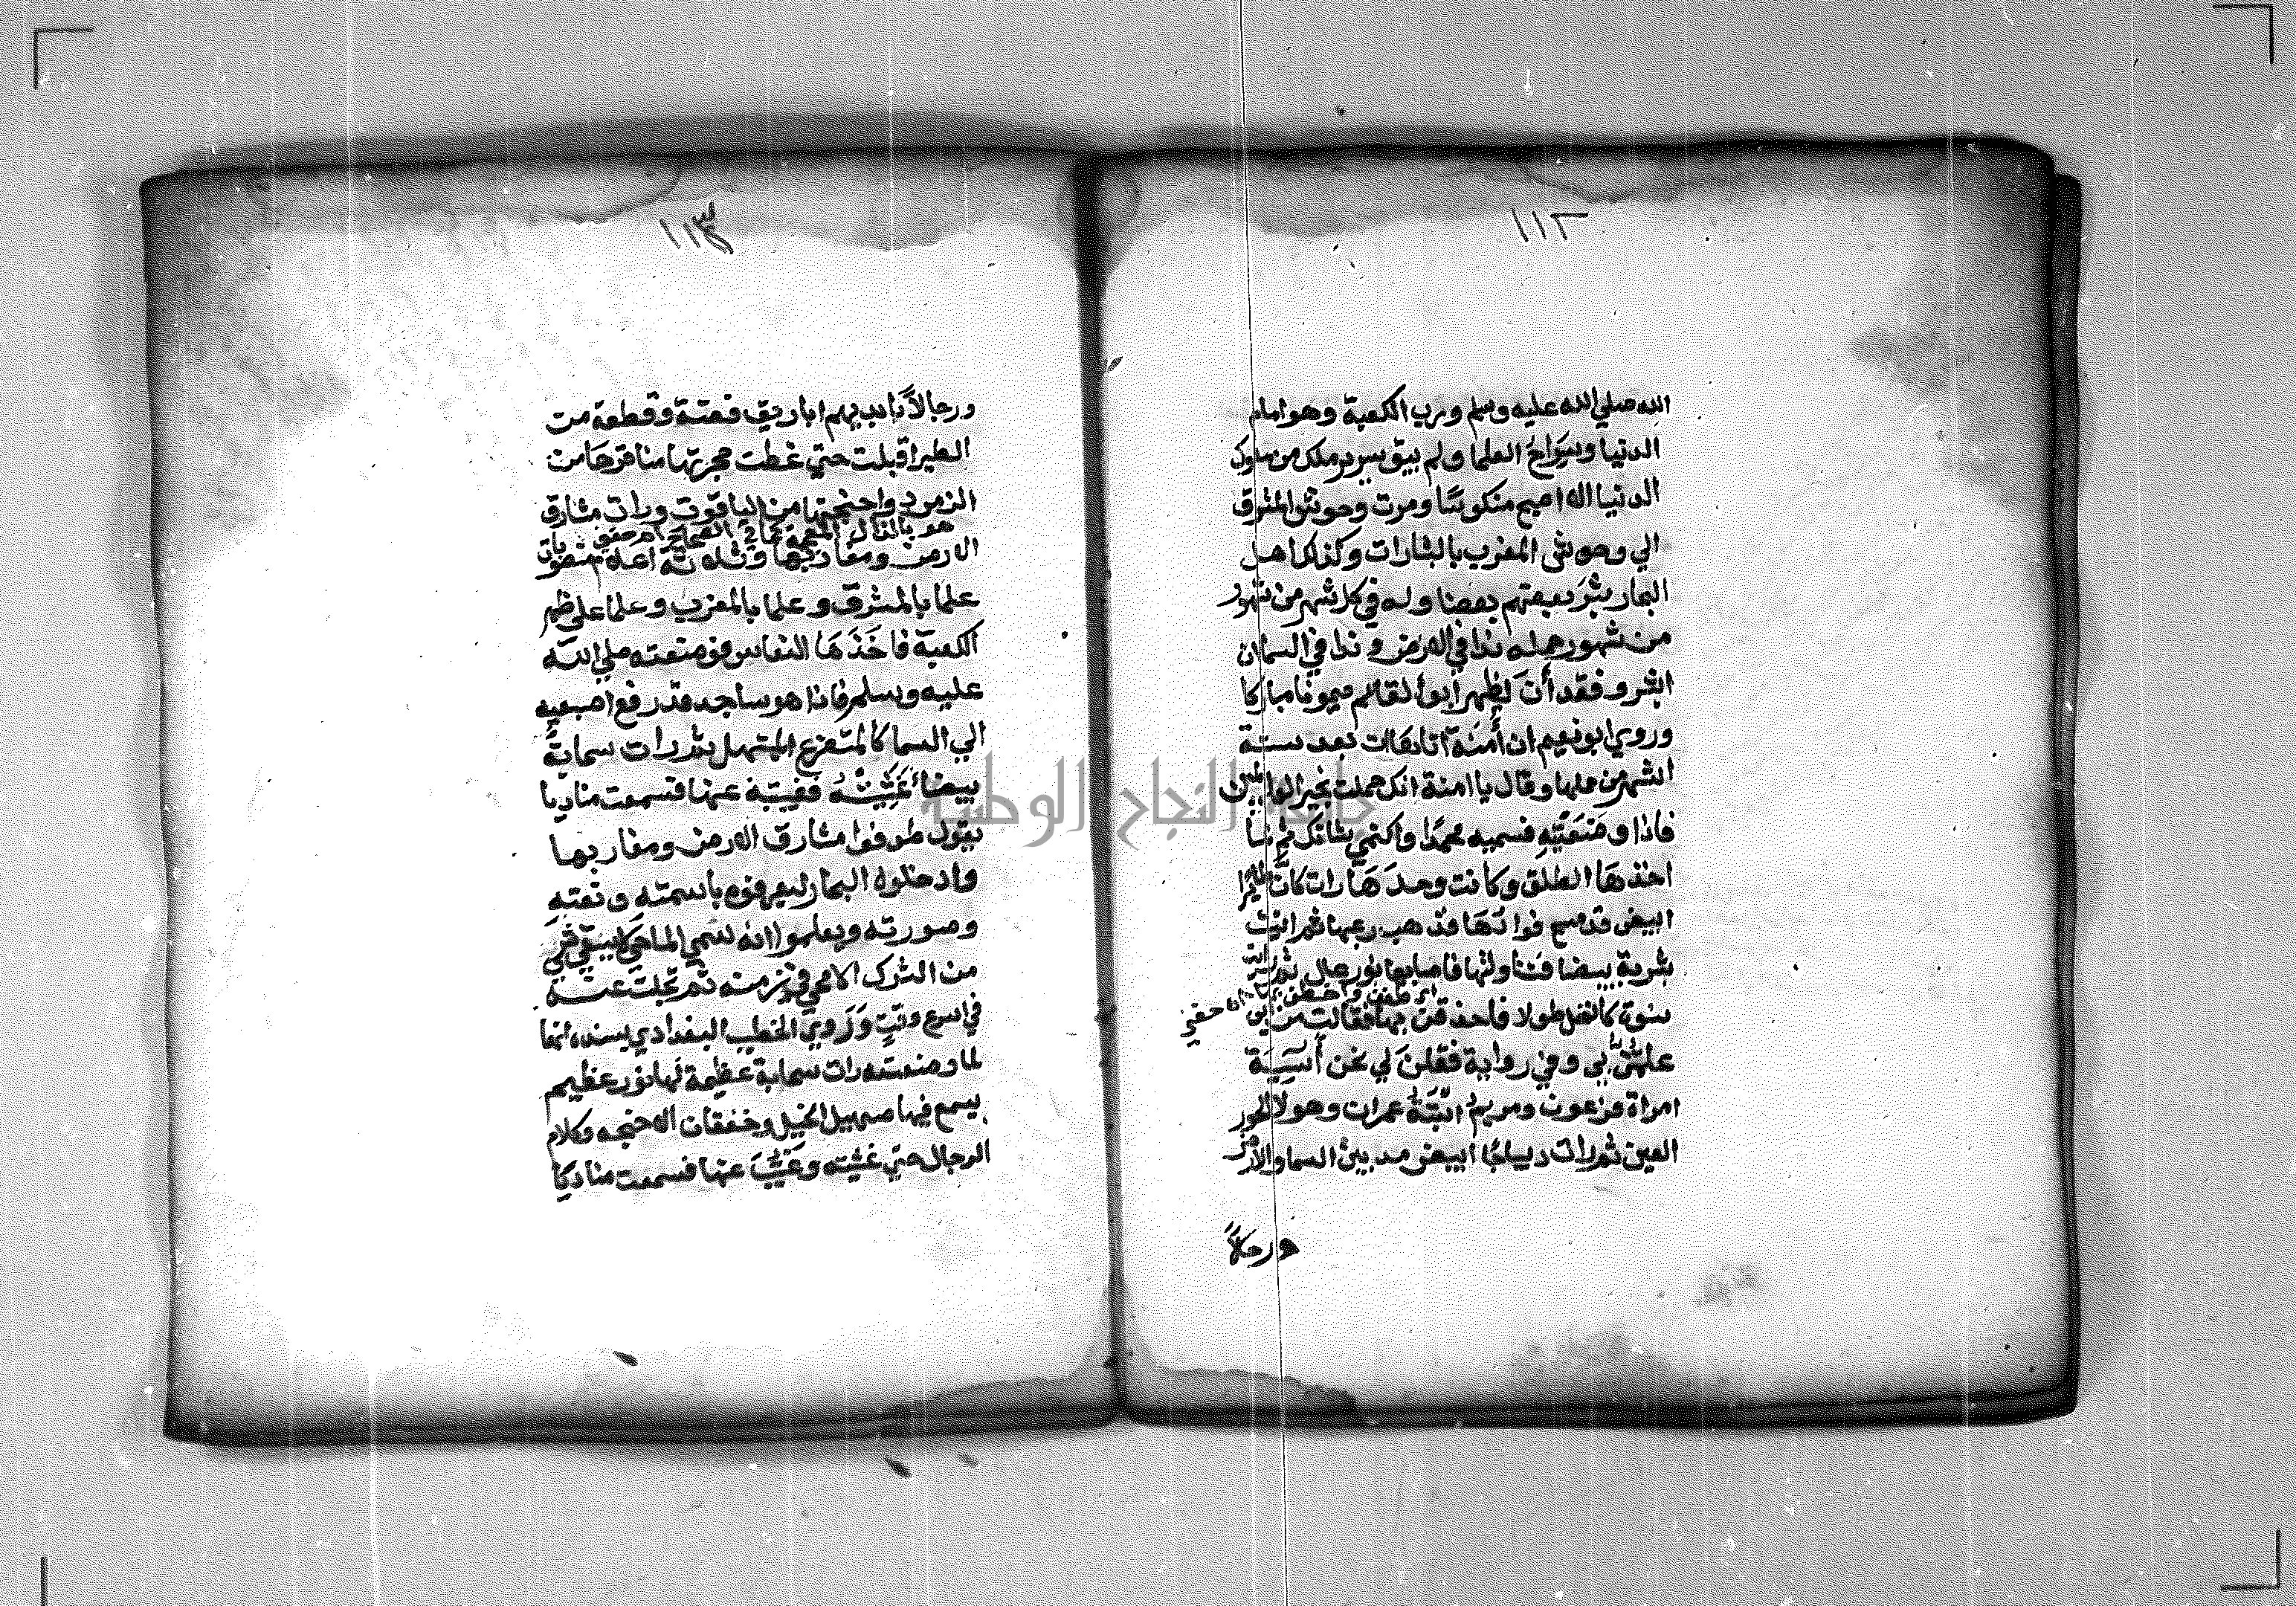 ١١٢
الله صلي الله عليه وسلم ورب الكعبة وهو امام
الدنيا وسراج العلما ولم يبق سرير ملك من ملوك
الدنيا الا اصبح منكوسًا ومرت وحوش المشرق
الي وحوش المغرب بالبشارات وكذلك اهل
البحار بشر بعضهم بعضا وله في كل شهر من شهور
من شهور حمله ندا في الارض وندا في السما ان
ابشرو فقد أن لظهر ابو القاسم ميمونا مباركا
وروي ابو نعيم ان أمنة اتاها ات بعد ستة
اشهر من حملها وقال يا امنة انك حملت بخير العالمين
فاذا وضعتيه فسميه محمدًا واكتمي شانك ثم لما
اخذها الطلق وكانت وحدها رات كان طيرا
ابيض قد مسح فوادها فذهب رعبها ثم اتيت
بشربة بيضا فتناولتها فاصابها نور عال ثم رات
نسوة كالنخل طولا فاحذقن بها فقالت من اين
علمتن بي وفي رواية فقلن لي نحن أسية
امراة فرعون ومريم ابنة عمران وهولا الحور
العين ثم رات ديباجًا ابيض مد بين السما والارض
ورجالاً
١١٣
ورجالاً بايديهم اباريق فضة وقطعة من
الطير اقبلت حتي غطت حجرتها مناقرها من
الزمرد واجنحتها من الياقوت ورات مشارق
هو بالذال المعجمة كما في الصحاح
الارض ومغاربها وثلاثة اعلام مضروبات
علما بالمشرق وعلما بالمغرب وعلما على ظهر
الكعبة فاخذها النفاس فوضعته صلي الله
عليه وسلم فاذا هو ساجد قد رفع اصبعيه
الي السما كالمتضرع المبتهل ثم رات سحابة
بيضا غشيته فغيبته عنها فسمعت مناديا
يقول طوفوا مشارق الارض ومغاربها
وادخلوه البحار ليعرفوه باسمه ونعته
وصورته ويعلموا انه سمي الماحي لا يبقي شي
من الشرك الا محي في زمنه ثم تجلت عنه
في اسرع وقت وروي الخطيب البغدادي بسنده انها
لما وضعته رات سحابة عظيمة لها نور عظيم
يسمع فيها صهيل الخيل وخفقان الاجنحه وكلام
الرجال حتي غشيته وغيب عنها فسمعت مناديًا
جامعة النجاح الوطنية